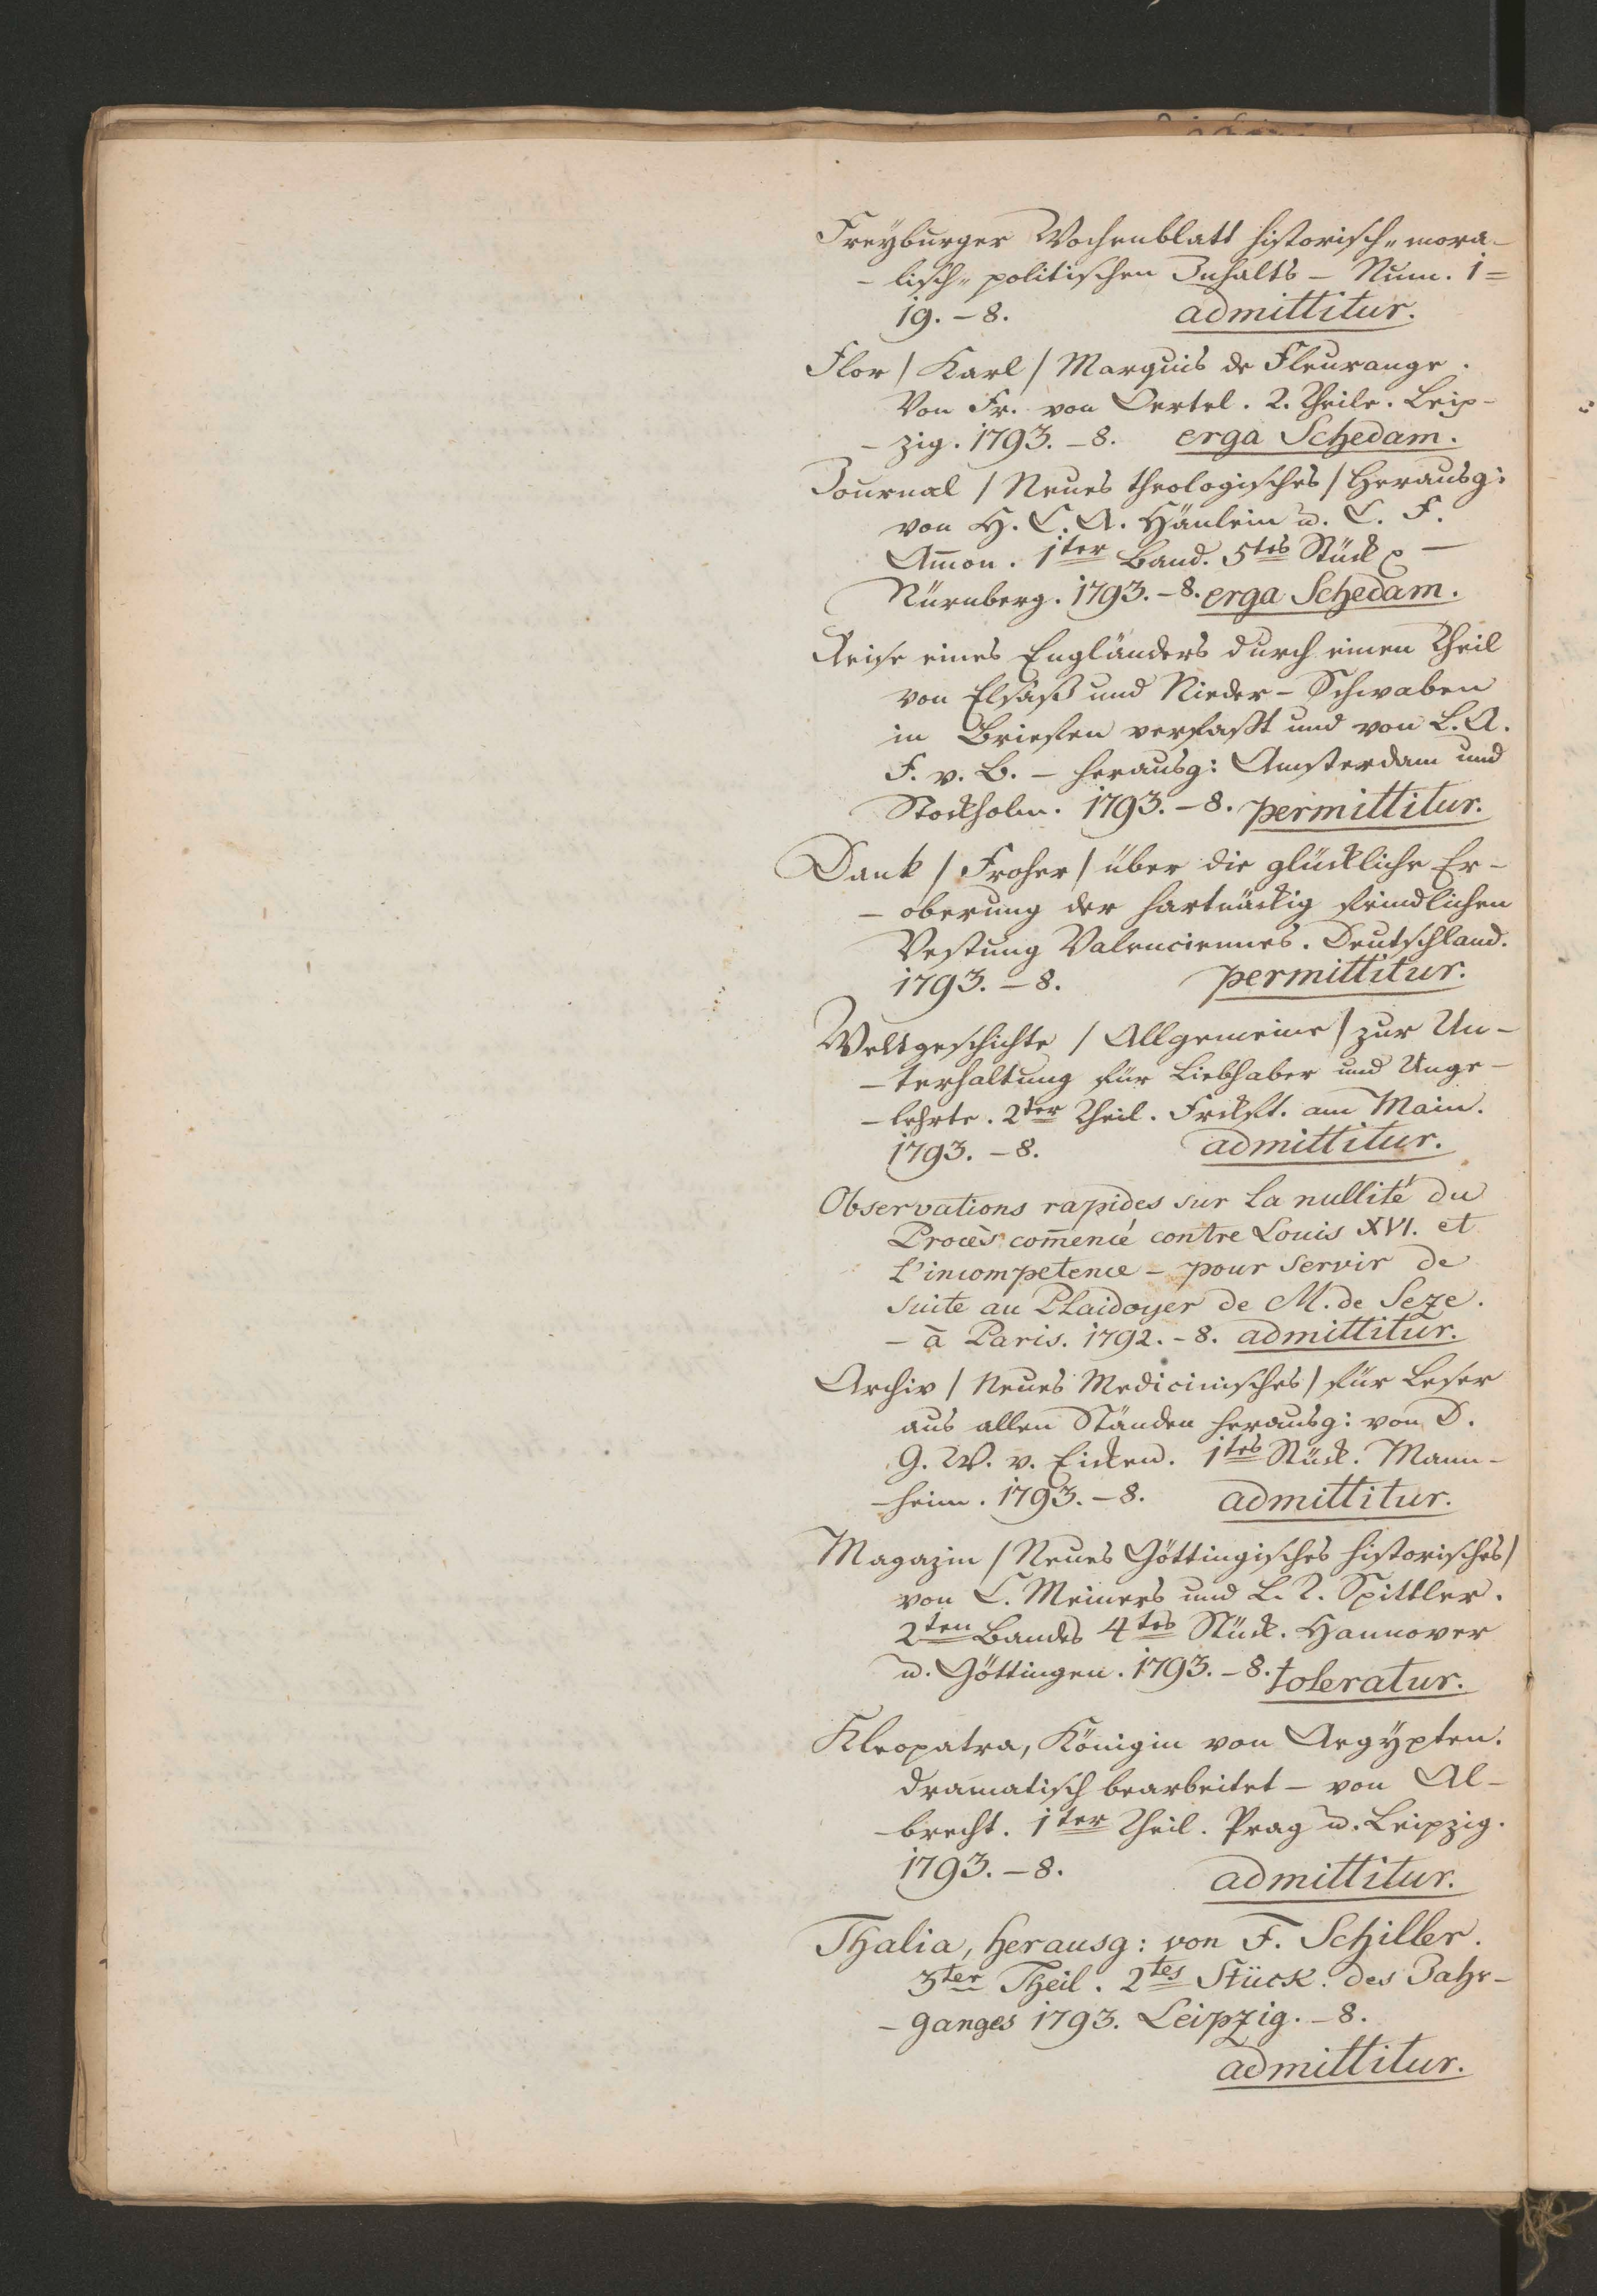 Freÿburger Wochenblatt historisch„mora-
- lisch„ politischen Inhalts - Num. 1=
19. - 8. admittitur.
Flor / Karl / Marquis de Fleurange.
Von Fr. von Oertel. 2. Theile. Leip-
- zig. 1793. - 8. erga Schedam.
Journal / Neues theologisches / Herausg:
von H. C. A. Hänlein u. C. F.
Am̄on. 1ter Band. 5tes Stück
Nürnberg. 1793. - 8. erga Schedam.
Reise eines Engländers durch einen Theil
von Elsaß und Nieder-Schwaben
in Briefen verfaßt und von L. A.
F. v. B. - herausg: Amsterdam und
Stockholm. 1793. - 8. permittitur.
Dank / Froher / über die glückliche Er-
- oberung der hartnäckig feindlichen
Vestung Valenciennes. Deutschland.
1793. - 8. permittitur.
Weltgeschichte / Allgemeine / zur Un-
- terhaltung für Liebhaber und Unge-
- lehrte. 2ter Theil. Frckft. am Main.
1793. - 8. admittitur.
Observations rapides sur la nullité du
Procès com̄encé contre Louis XVI. et
L'incompetence - pour servir de
suite au Plaidoyer de M. de Seze.
- à Paris. 1792. - 8. admittitur.
Archiv / Neues Medicinisches / für Leser
aus allen Ständen herausg: von D.
G. W. v. Eicken. 1tes Stück. Mann-
- heim. 1793. - 8. admittitur.
Magazin / Neues Göttingisches historisches /
von C. Meiners und L. T. Spittler.
2ten Bandes 4tes Stück. Hannover
u. Göttingen. 1793. - 8. toleratur.
Kleopatra, Königin von Aegÿpten.
dramatisch bearbeitet - von Al-
- brecht. 1ter Theil. Prag u. Leipzig.
1793. - 8. admittitur.
Thalia, herausg: von F. Schiller.
3ter Theil. 2tes Stück. des Jahr-
- ganges 1793. Leipzig. - 8.
admittitur.